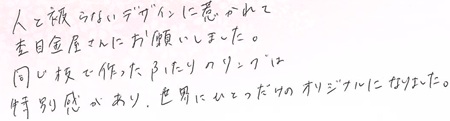 人と被らないデザインに惹かれて
杢目金屋さんにお願いしました。
同じ板で作ったふたりのリングは
特別感があり、世界にひとつだけのオリジナルになりました。